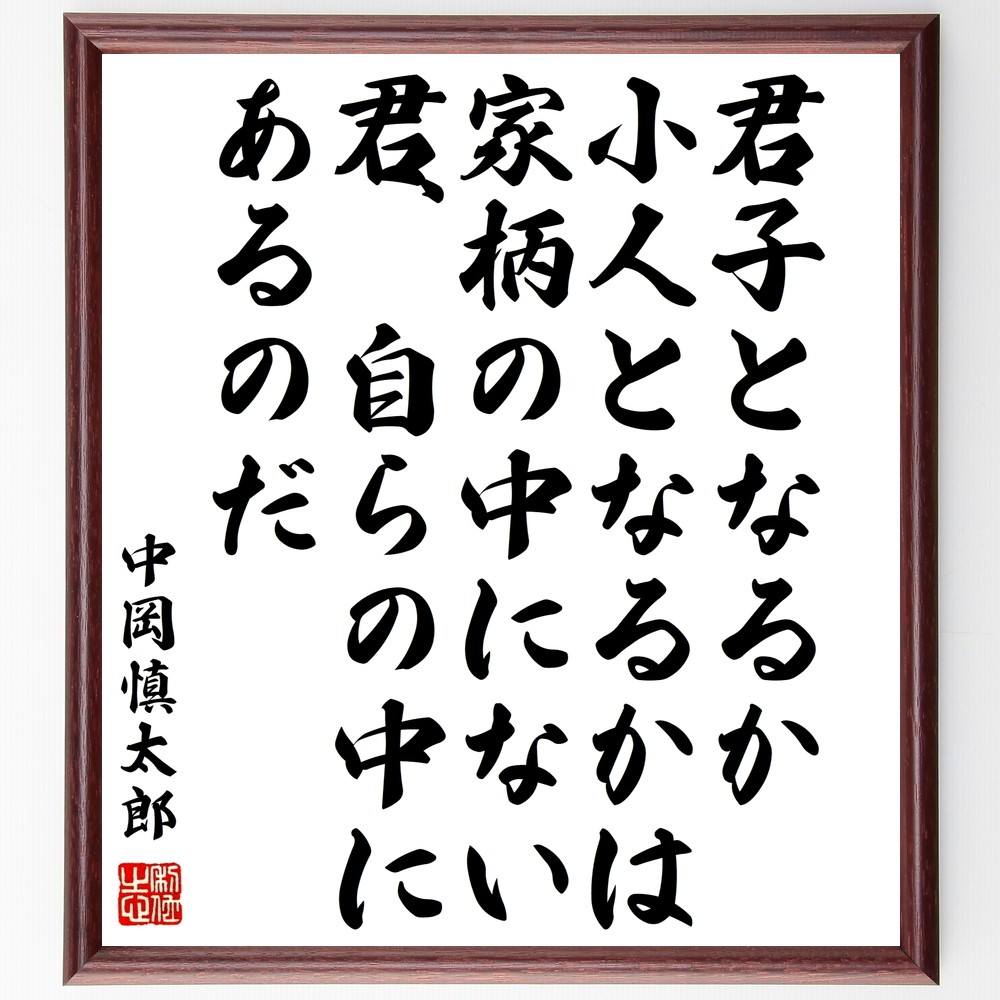 君子となるか
小人となるかは
家柄の中にない
君、自らの中に
あるのだ
中岡慎太郎